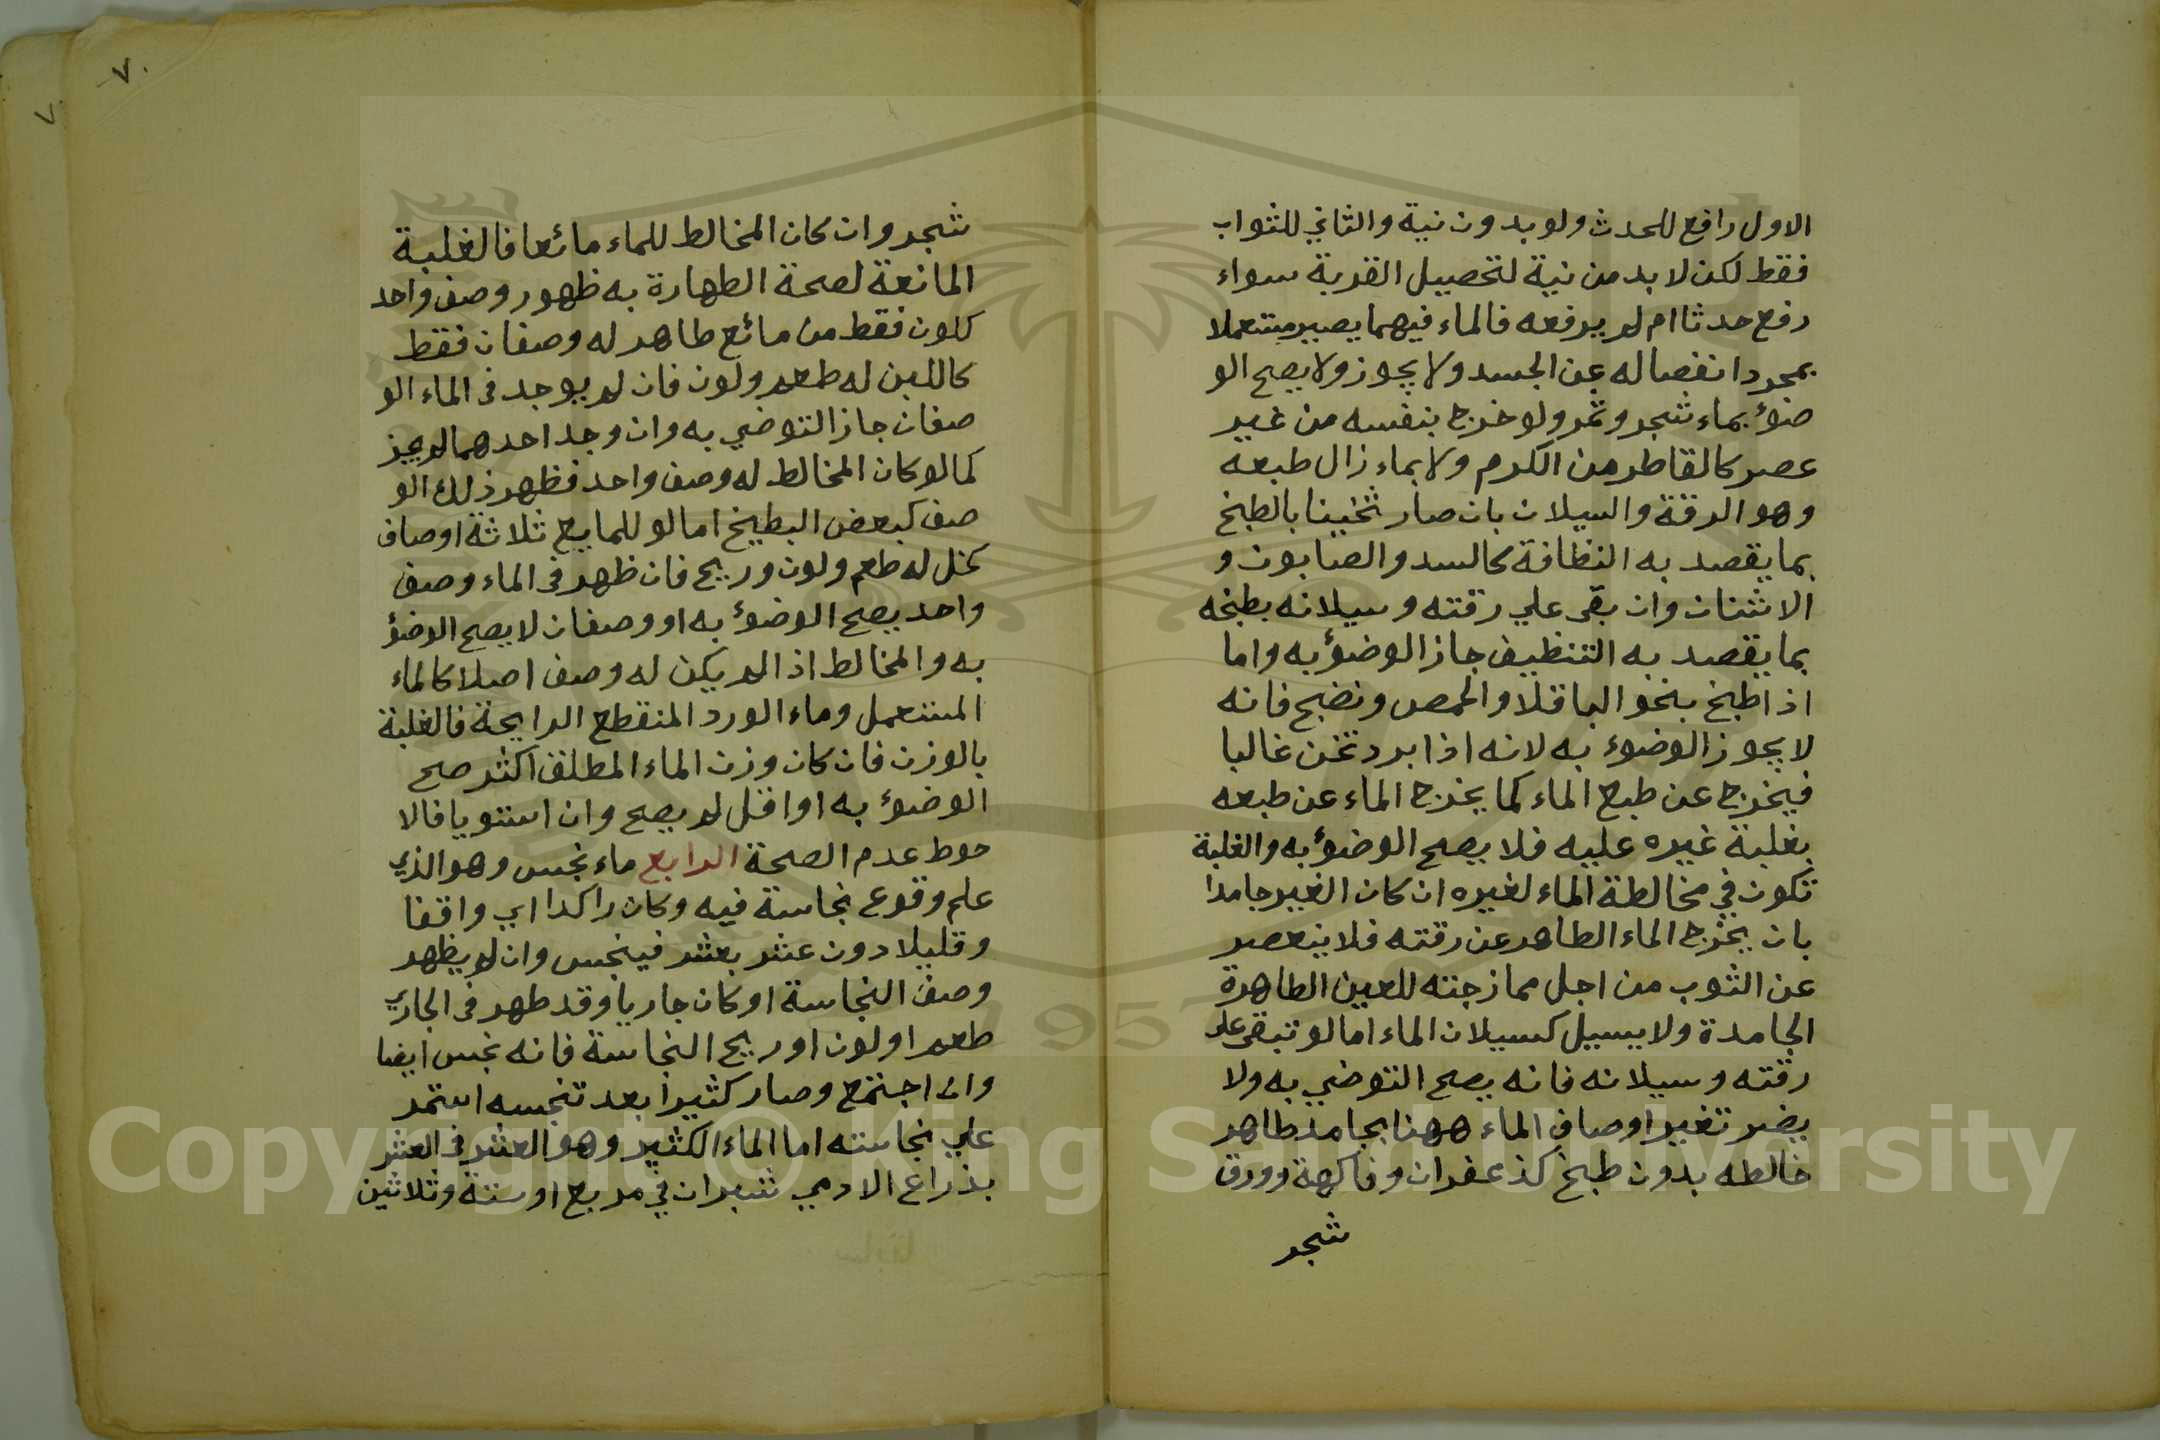 الاول رافع للحدث ولو بدون نية والثاني للثواب
فقط لكن لا بد من نية لتحصيل القربة سواء
رفع حدثا ام لم يرفعه فالماء فيهما يصير مستعملا
بمجرد انفصاله عن الجسد ولا يجوز ولا يصح الو
ضوء بماء شجر وثمر ولو خرج بنفسه من غير
عصر كالقاطر من الكرم ولا بماء زال طبعه
وهو الرقة والسيلان بان صار ثخينا بالطبخ
بما يقصد به النظافة كالسدر والصابون و
الاشنان وان بقى علي رقته وسيلانه بطبخه
بما يقصد به التنظيف جاز الوضوء به واما
اذا طبخ بنحو الباقلا والحمص ونضج فانه
لا يجوز الوضوء به لانه اذا برد ثخن غالبا
فيخرج عن طبع الماء كما يخرج الماء عن طبعه
بغلبة غيره عليه فلا يصح الوضوء به والغلبة
تكون في مخالطة الماء لغيره ان كان الغير جامدا
بان يخرج الماء الطاهر عن رقته فلا ينعصر
عن الثوب من اجل ممازجته للعين الطاهرة
الجامدة ولا يسيل كسيلان الماء اما لو تبقى على
رقته وسيلانه فانه يصح التوضي به ولا
يضر تغير اوصاف الماء ههنا بجامد طاهر
خالطه بدون طبخ كزعفران وفاكهة وورق
شجر
٧٠
٧٠
شجر وان كان المخالط للماء مائعا فالغلبة
المانعة لصحة الطهارة به ظهور وصف واحد
كلون فقط من مائع طاهر له وصفان فقط
كاللبن له طعم ولون فان لم يوجد فى الماء الو
صفان جاز التوضي به وان وجد احدهما لم يجز
كما لو كان المخالط له وصف واحد فظهر ذلك الو
صف كبعض البطيخ اما لو للمايع ثلاثة اوصاف
كخل له طعم ولون وريح فان ظهر فى الماء وصف
واحد يصح الوضوء به او وصفان لا يصح الوضوء
به والمخالط اذا لم يكن له وصف اصلا كالماء
المستعمل وماء الورد المنقطع الرايحة فالغلبة
بالوزن فان كان وزن الماء المطلق اكثر صح
الوضوء به او اقل لم يصح وان استويا فالا
حوط عدم الصحة الرابع ماء نجس وهو الذي
علم وقوع نجاسة فيه وكان راكدا اي واقفا
وقليلا دون عشر بعشر فينجس وان لم يظهر
وصف النجاسة او كان جاريا وقد ظهر فى الجاري
طعم او لون او ريح النجاسة فانه نجس ايضا
وان اجتمع وصار كثيرا بعد تنجسه استمر
علي نجاسته اما الماء الكثير وهو العشر فى العشر
بذراع الادمي شبران في مربع او ستة وثلاثين
1957
Copyright © King Saud University